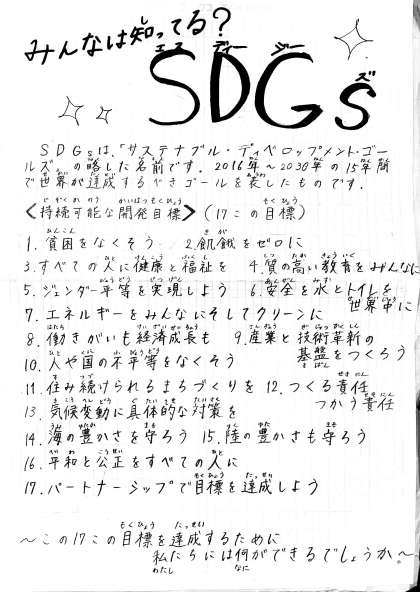 みんなは知ってる?
SDGs
SDGsは、「サステナブル・ディベロップメント・ゴー
ルズ」の略した名前です。2016年〜2030年の15年間
で世界が達成するべきゴールを表したものです。
<持続可能な開発目標>(17この目標)
1.貧困をなくそう 2.飢餓をゼロに
3.すべての人に健康と福祉を 4.質の高い教育をみんなに
5.ジェンダー平等を実現しよう 6.安全を水とトイレを
世界中に
7.エネルギーをみんなにそしてクリーンに
8.働きがいも経済成長も 9.産業と技術革新の
基盤をつくろう
10.人や国の不平等をなくそう
11.住み続けられるまちづくりを 12.つくる責任
つかう責任
13.気候変動に具体的な対策を
14.海の豊かさを守ろう 15.陸の豊かさも守ろう
16.平和と公正をすべての人に
17.パートナーシップで目標を達成しよう
〜この17この目標を達成するために
私たちには何ができるでしょうか〜。